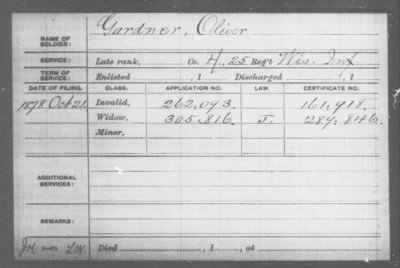 NAME OF SOLDIER: Gardner, Oliver
SERVICE: Late rank, Co. H, 25 Reg't Wis. Inf.
TERM OF SERVICE: Enlisted , 1 Discharged , 1
DATE OF FILING. CLASS. APPLICATION NO. LAW. CERTIFICATE NO.
1878 Oct 21 Invalid, 262,093. 161,918.
Widow, 305,816. J. 289,846.
Minor,
ADDITIONAL SERVICES:
REMARKS:
Died , 1 , at